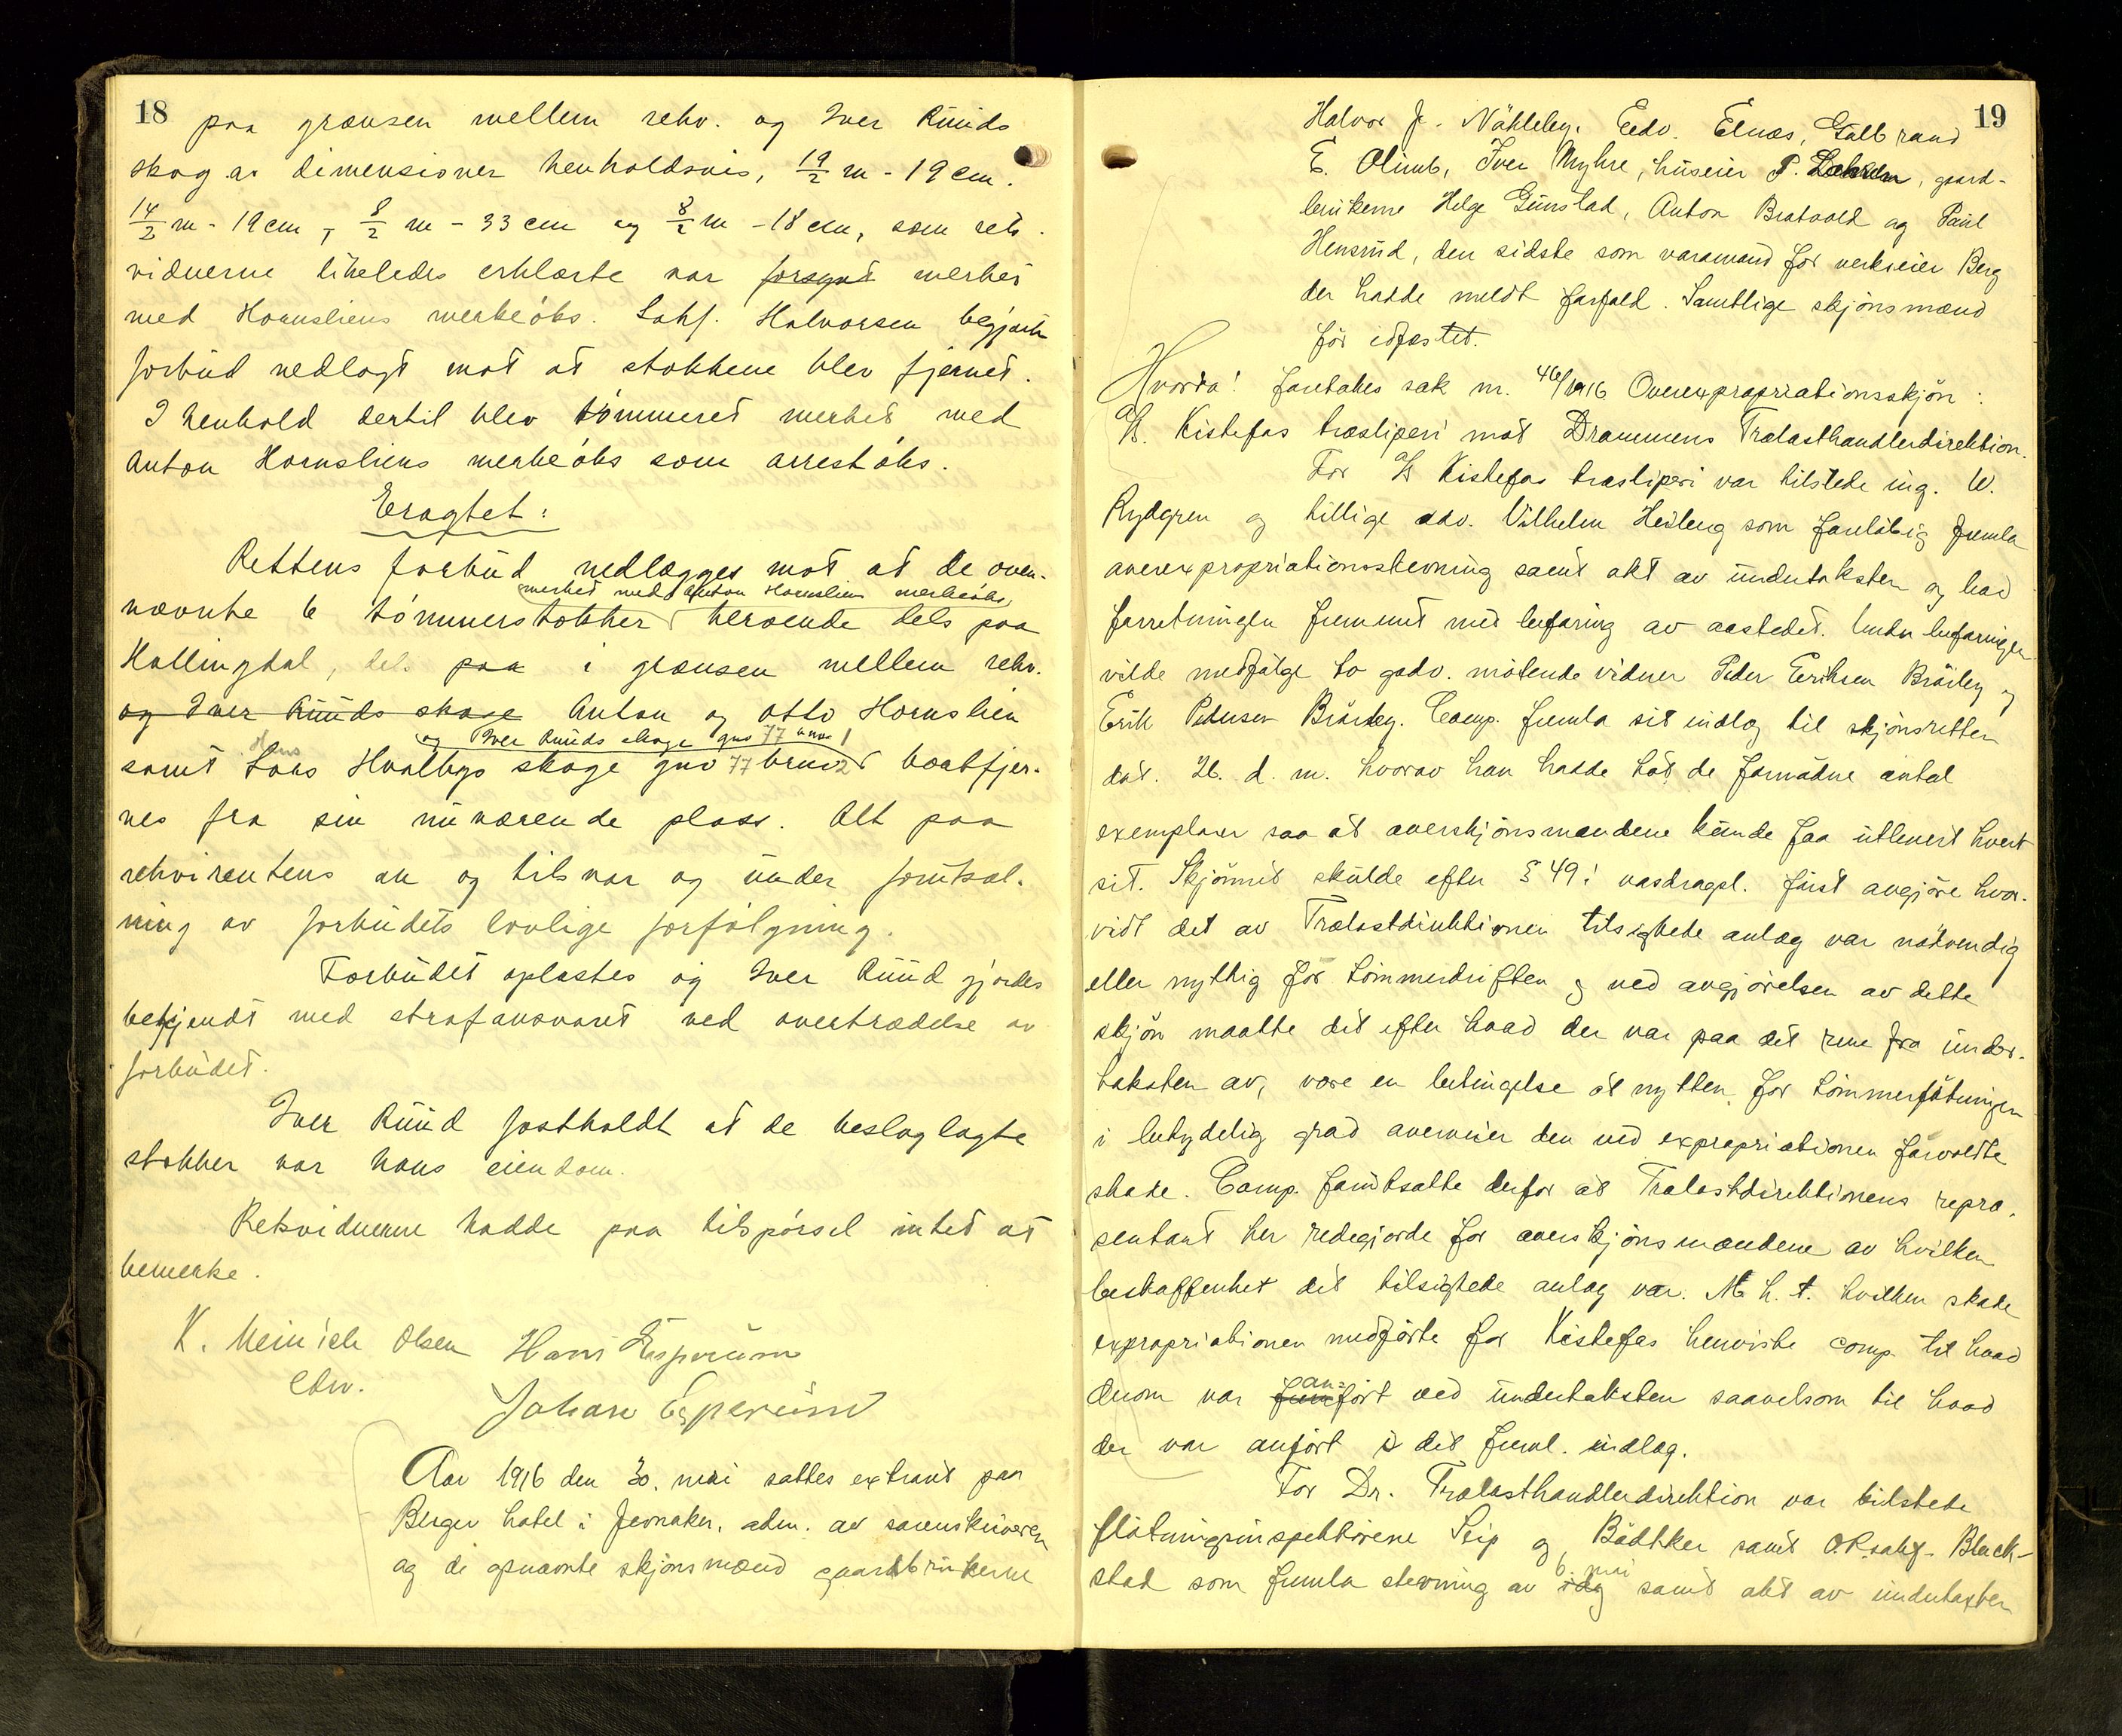 18
paa grænsen mellem rekv. og Iver Ruuds
skog av dimensioner henholdsvis, 19/2 m - 19 cm.
14/2 m - 19 cm, 8/2 m - 33 cm og 8/2 m - 18 cm, som rets-
vidnerne likeledes erklærte var forsynt merket
med Hornsliens merkeöks. Sakf. Halvorsen begjærte
forbud nedlagt mot at stokkene blev fjernet.
I henhold dertil blev tömmeret merket med
Anton Hornsliens merkeöks som arrestöks.
Eragtet:
Rettens forbud nedlægges mot at de oven-
merket med Anton Hornsliens merkeöks,
nævnte 6 tömmerstokker beroende dels paa
Hallingdal, dels paa i grænsen mellem rekv.
og Iver Ruuds skoge Anton og Otto Hornslien
og Iver Ruuds skoge gno 77 bno 1
Hans
samt Lars Hvalbys skoge gno 77 bruno 2 bortfjer-
nes fra sin nuværende plass. Alt paa
rekvirentens an og tilsvar og under forutsæt-
ning av forbudets lovlige forfölgning.
Forbudet oplæstes og Iver Ruud gjordes
bekjendt med strafansvaret ved overtrædelse av
forbudet.
Iver Ruud fastholdt at de beslaglagte
stokker var hans eiendom.
Retsvidnerne hadde paa tilspörsel intet at
bemerke.
K. Meinich Olsen Hans Esperum
cbm.
Johan Esperund
Aar 1916 den 30. mai sattes extraret paa
Berger hotel i Jevnaker, adm. av sorenskriveren
og de opnævnte skjönsmænd gaardbrukerne
19
Halvor J. Nökleby, Edv. Elnæs, Gulbrand
E. Olimb, Iver Myhre, huseier P., gaard-
brukerne Helge Gunstad, Anton Bratvold og Paul
Hensrud, den sidste som varamand for verkseier Berg
der hadde meldt forfald. Samtlige skjönsmænd
för edfæstet.
Hvorda! foretages sak nr. 46/1916 Overexpropriationsskjön:
A/S. Kistefos træsliperi mot Drammens Trælasthandlerdirektion.
For A/S Kistefos træsliperi var tilstede ing. W.
Rydgren og tillige adv. Vilhelm Heiberg som foreløbig fremla
overexpropriationsstevning samt akt av undertaksten og bad
forretningen fremmet med befaring av aastedet. Under befaringen
vilde medfölge to godv. mötende vidner Peder Eriksen Bråtley og
Erik Pedersen Bråtley. Comp. fremla sit indlæg til skjönsretten
dat. 26. d. m. hvorav han hadde tat de fornödne antal
exemplarer saa at overskjönsmændene kunde faa utlevert hvert
sit. Skjönnet skulde efter § 49! vasdragsl. först avgjöre hvor-
vidt det av Trælastdirektionen tilsigtede anlæg var nödvendig
eller nyttig for tömmerdriften og ved avgjörelsen av dette
skjön maatte det efter hvad der var paa det rene fra under-
taksten av, være en betingelse at nytten for tömmerflötningen
i betydelig grad overveier den ved expropriationen forvoldte
skade. Comp. forutsatte derfor at Trælastdirektionens repræ-
sentant her redegjorde for overskjönsmændene av hvilken
beskaffenhet det tilsigtede anlæg var. M. h. t. hvilken skade
expropriationen medförte for Kistefos henviste comp. til hvad
an-
derom var fremfört ved undertaksten saavelsom til hvad
der var anfört i det freml. indlæg.
For Dr. Trælasthandlerdirektion var tilstede
flötningsinspektörene Seip og Bödtker samt O.R.sakf. Black-
6. mai
stad som fremla stevning av idag samt akt av undertaxten